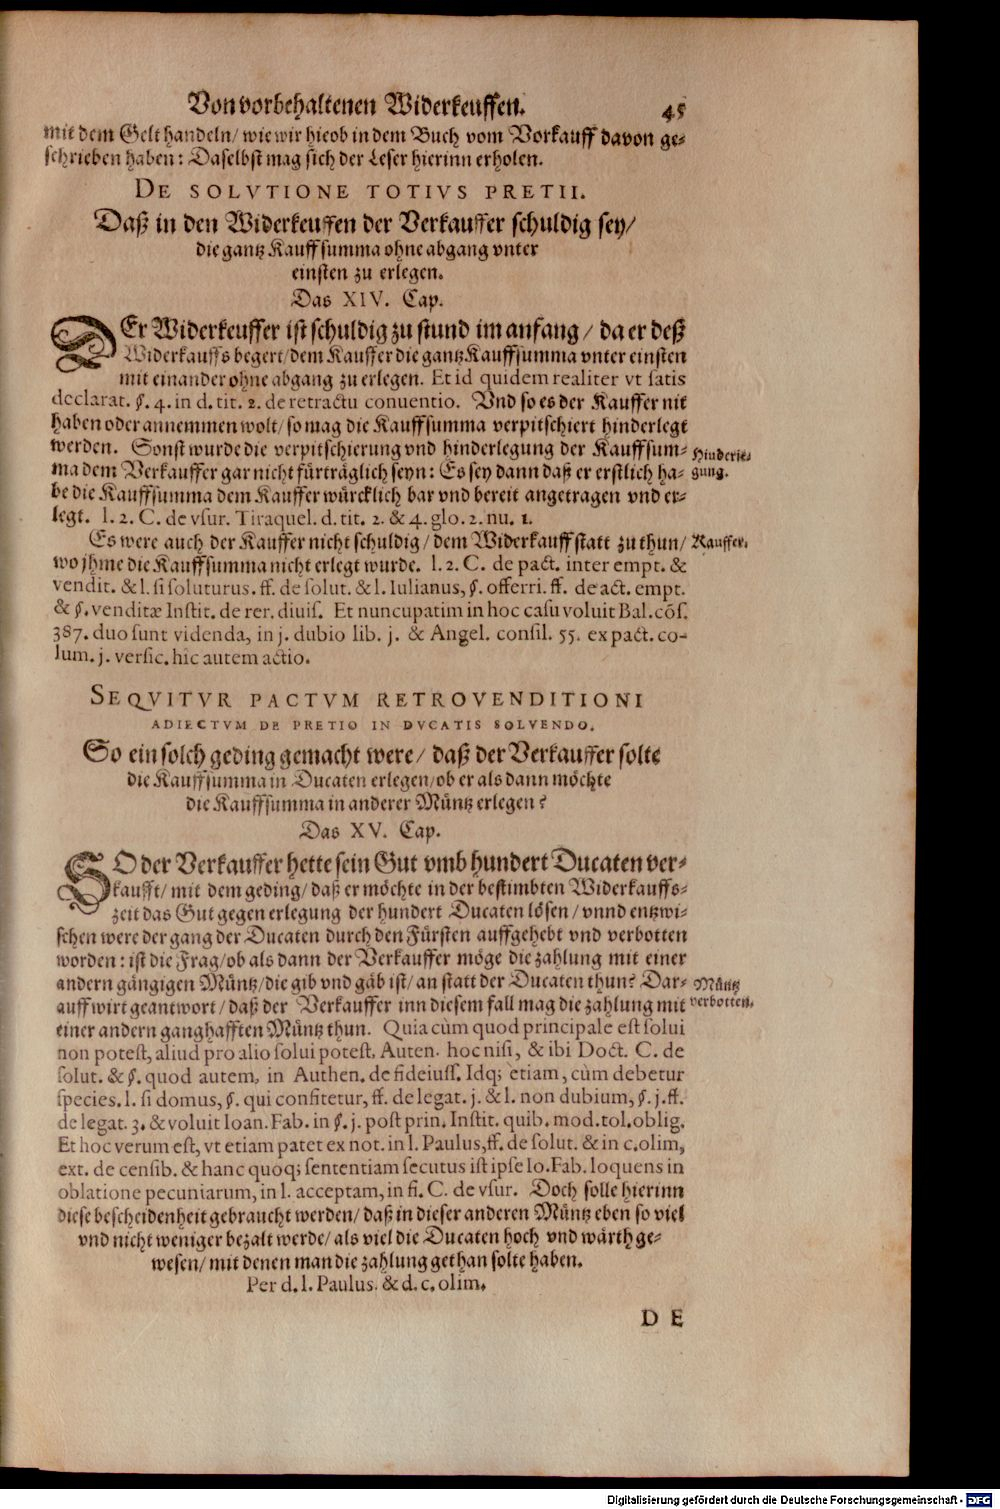 Von vorbehaltenen Widerkeuffen. 45
mit dem Gelt handeln/ wie wir hieob in dem Buch vom Vorkauff davon ge-
schrieben haben: Daselbst mag sich der Leser hierinn erholen.
DE SOLVTIONE TOTIVS PRETII.
Daß in den Widerkeuffen der Verkauffer schuldig sey/
die gantz Kauffsumma ohne abgang vnter
einsten zu erlegen.
Das XIV. Cap.
DEr Widerkeuffer ist schuldig zu stund im anfang / da er deß
Widerkauffs begert/ dem Kauffer die gantz Kauffsumma vnter einsten
mit einander ohne abgang zu erlegen. Et id quidem realiter vt satis
declarat. §. 4. in d. tit. 2. de retractu conuentio. Vnd so es der Kauffer nit
haben oder annemmen wolt/ so mag die Kauffsumma verpitschiert hinderlegt
werden. Sonst wurde die verpitschierung vnd hinderlegung der Kauffsum-
Hinderle-
gung.
ma dem Verkauffer gar nicht fürträglich seyn: Es sey dann daß er erstlich ha-
be die Kauffsumma dem Kauffer würcklich bar vnd bereit angetragen vnd er-
legt. l. 2. C. de vsur. Tiraquel. d. tit. 2. & 4. glo. 2. nu. 1.
Es were auch der Kauffer nicht schuldig/ dem Widerkauff statt zu thun/
Kauffer.
wo jhme die Kauffsumma nicht erlegt wurde. l. 2. C. de pact. inter empt. &
vendit. & l. si soluturus. ff. de solut. & l. Iulianus, §. offerri. ff. de act. empt.
& §. venditæ Instit. de rer. diuis. Et nuncupatim in hoc casu voluit Bal. cõs.
387. duo sunt videnda, in j. dubio lib. j. & Angel. consil. 55. ex pact. co-
lum. j. versic. hic autem actio.
SEQVITVR PACTVM RETROVENDITIONI
ADIECTVM DE PRETIO IN DVCATIS SOLVENDO.
So ein solch geding gemacht were/ daß der Verkauffer solte
die Kauffsumma in Ducaten erlegen/ ob er als dann möchte
die Kauffsumma in anderer Müntz erlegen?
Das XV. Cap.
SO der Verkauffer hette sein Gut vmb hundert Ducaten ver-
kaufft/ mit dem geding/ daß er möchte in der bestimbten Widerkauffs-
zeit das Gut gegen erlegung der hundert Ducaten lösen/ vnnd entzwi-
schen were der gang der Ducaten durch den Fürsten auffgehebt vnd verbotten
worden: ist die Frag/ ob als dann der Verkauffer möge die zahlung mit einer
andern gängigen Müntz/ die gib vnd gäb ist/ an statt der Ducaten thun? Dar-
Müntz
verbotten.
auff wirt geantwort/ daß der Verkauffer inn diesem fall mag die zahlung mit
einer andern ganghafften Müntz thun. Quia cùm quod principale est solui
non potest, aliud pro alio solui potest. Auten. hoc nisi, & ibi Doct. C. de
solut. & §. quod autem, in Authen. de fideiuss. Idq; etiam, cùm debetur
species. l. si domus, §. qui confitetur, ff. de legat. j. & l. non dubium, §. j. ff.
de legat. 3. & voluit Ioan. Fab. in §. j. post prin. Instit. quib. mod. tol. oblig.
Et hoc verum est, vt etiam patet ex not. in l. Paulus, ff. de solut. & in c. olim,
ext. de censib. & hanc quoq; sententiam secutus ist ipse Io. Fab. loquens in
oblatione pecuniarum, in l. acceptam, in fi. C. de vsur. Doch solle hierinn
diese bescheidenheit gebraucht werden/ daß in dieser anderen Müntz eben so viel
vnd nicht weniger bezalt werde/ als viel die Ducaten hoch vnd wärth ge-
wesen/ mit denen man die zahlung gethan solte haben.
Per d. l. Paulus. & d. c. olim.
DE
Digitalisierung gefördert durch die Deutsche Forschungsgemeinschaft - DFG